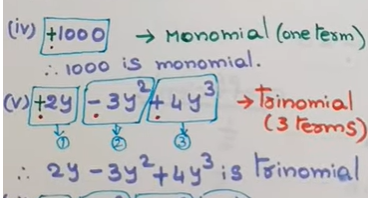 (iv) +1000 → Monomial (one term)
∴ 1000 is monomial.
(v) +2y - 3y² + 4y³ → Trinomial
(3 terms)
① ② ③
∴ 2y - 3y² + 4y³ is trinomial